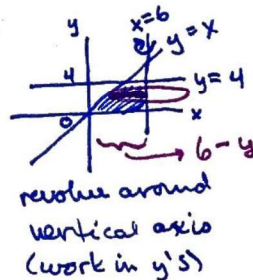 x=6
y
y=x
4
y=4
0
x
6-y
revolve around
vertical axis
(work in y's)